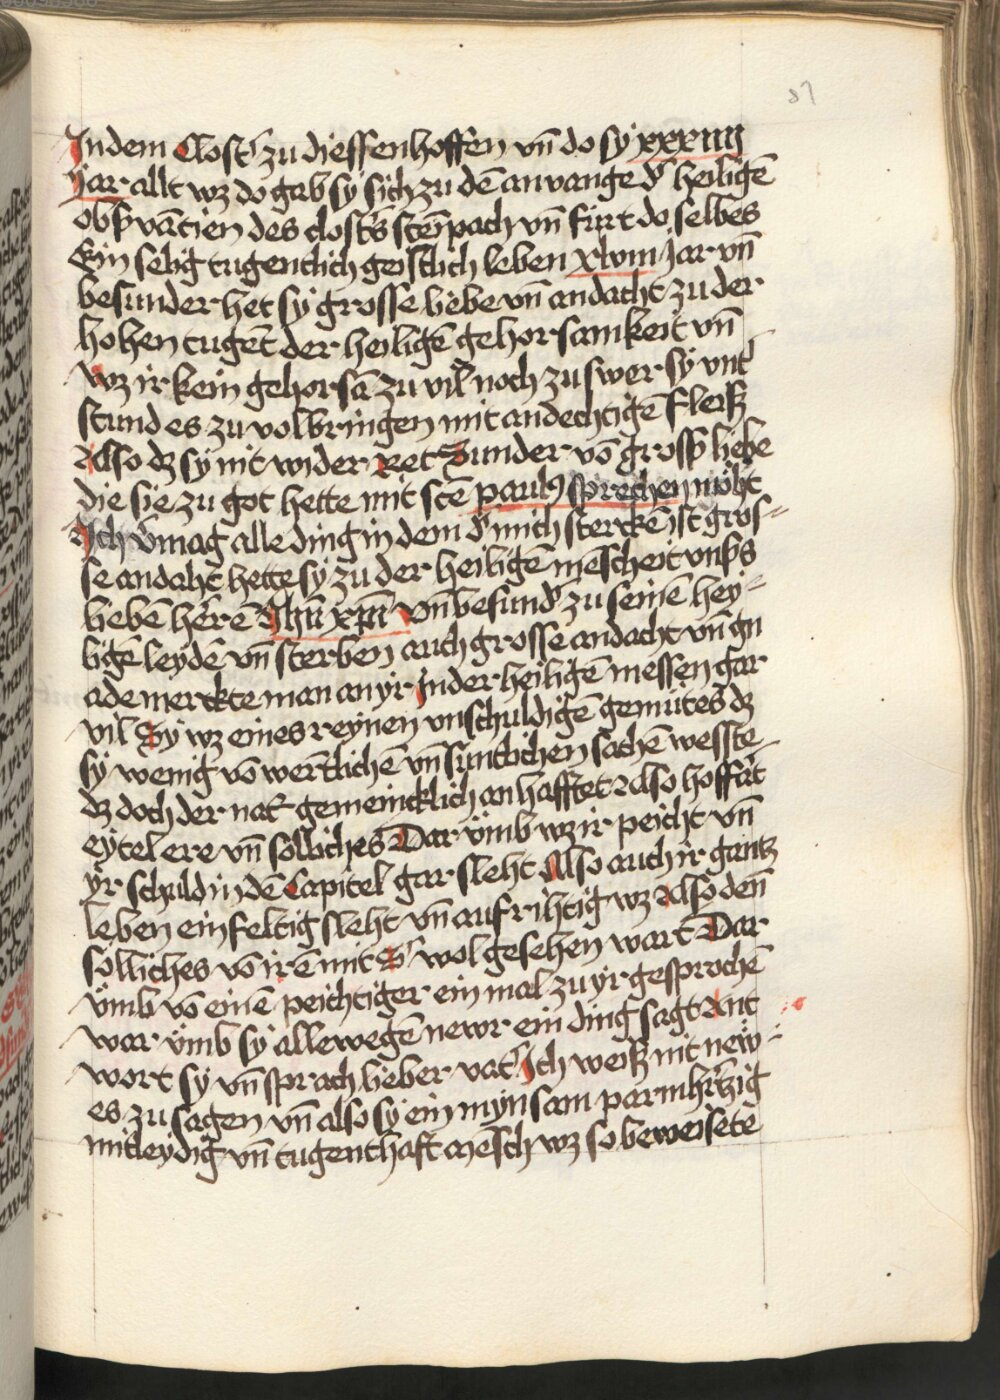 87
Jn dem Clost̓ zu diessenhoffen vn̄ do sy xxxiiij
Jar allt wz do gab sy sich zu dē anvange d̓ heiligē
obs̓vātien des clost̓s stēi͂pach vn̄ fürt do selbes
Ein selig tugentlich geistlich leben xlviij Jar vn̄
besunder het sy grosse liebe vn̄ andacht zu der
hohen tugēt der heiligē gehorsamkeit vn̄
wz ir kein gehorsā zu vil noch zu swer sy vnt
stund es zu volbringen mit andechtigē fleiß
Also dz sy nit wider ret Sunder vō gross̓ liebe
die sie zu got hette mit sct̄e paulꝰ sprechen möht
Jch v̓mag alle ding in dem d̓ mich sterckē ist gros-
se andaht hette sy zu der heiligē mēscheit vns̓s
liebē herrē Jhū xp̄i vn̄ besund̓ zu seinē hey-
ligē leydē vn̄ sterben auch grosse andacht vn̄ gn
ade merckte man an yr Jn der heiligē messen gar
vil Sy wz eines reynen vnschuldigē gemütes dz
sy wenig vō werltlichē vn̄ süntlichen sachē wesste
dz doch der nat̓ gemeincklich an hafftet Also hoffart
eytel ere vn̄ solliches Dar vmb wz ir peicht vn̄
yr schuld in dē Capitel gar sleht Also auch ir gantz
leben einfeltig sleht vn̄ aufrihtig wz Also den̄
solliches vō irē mit S̓ wol gesehen wart Dar
vmb vō einē peichtiger ein mal zu yr gesprochē
war vmb sy allewegē newr ein ding sagt Ant
wort sy vn̄ sprach lieber vat̓ Jch weiß nit new-
es zu sagen vn̄ also sy ein mynsam parmh̓tzig
mitleydig vn̄ tugenthaft mēsch wz so beweisete